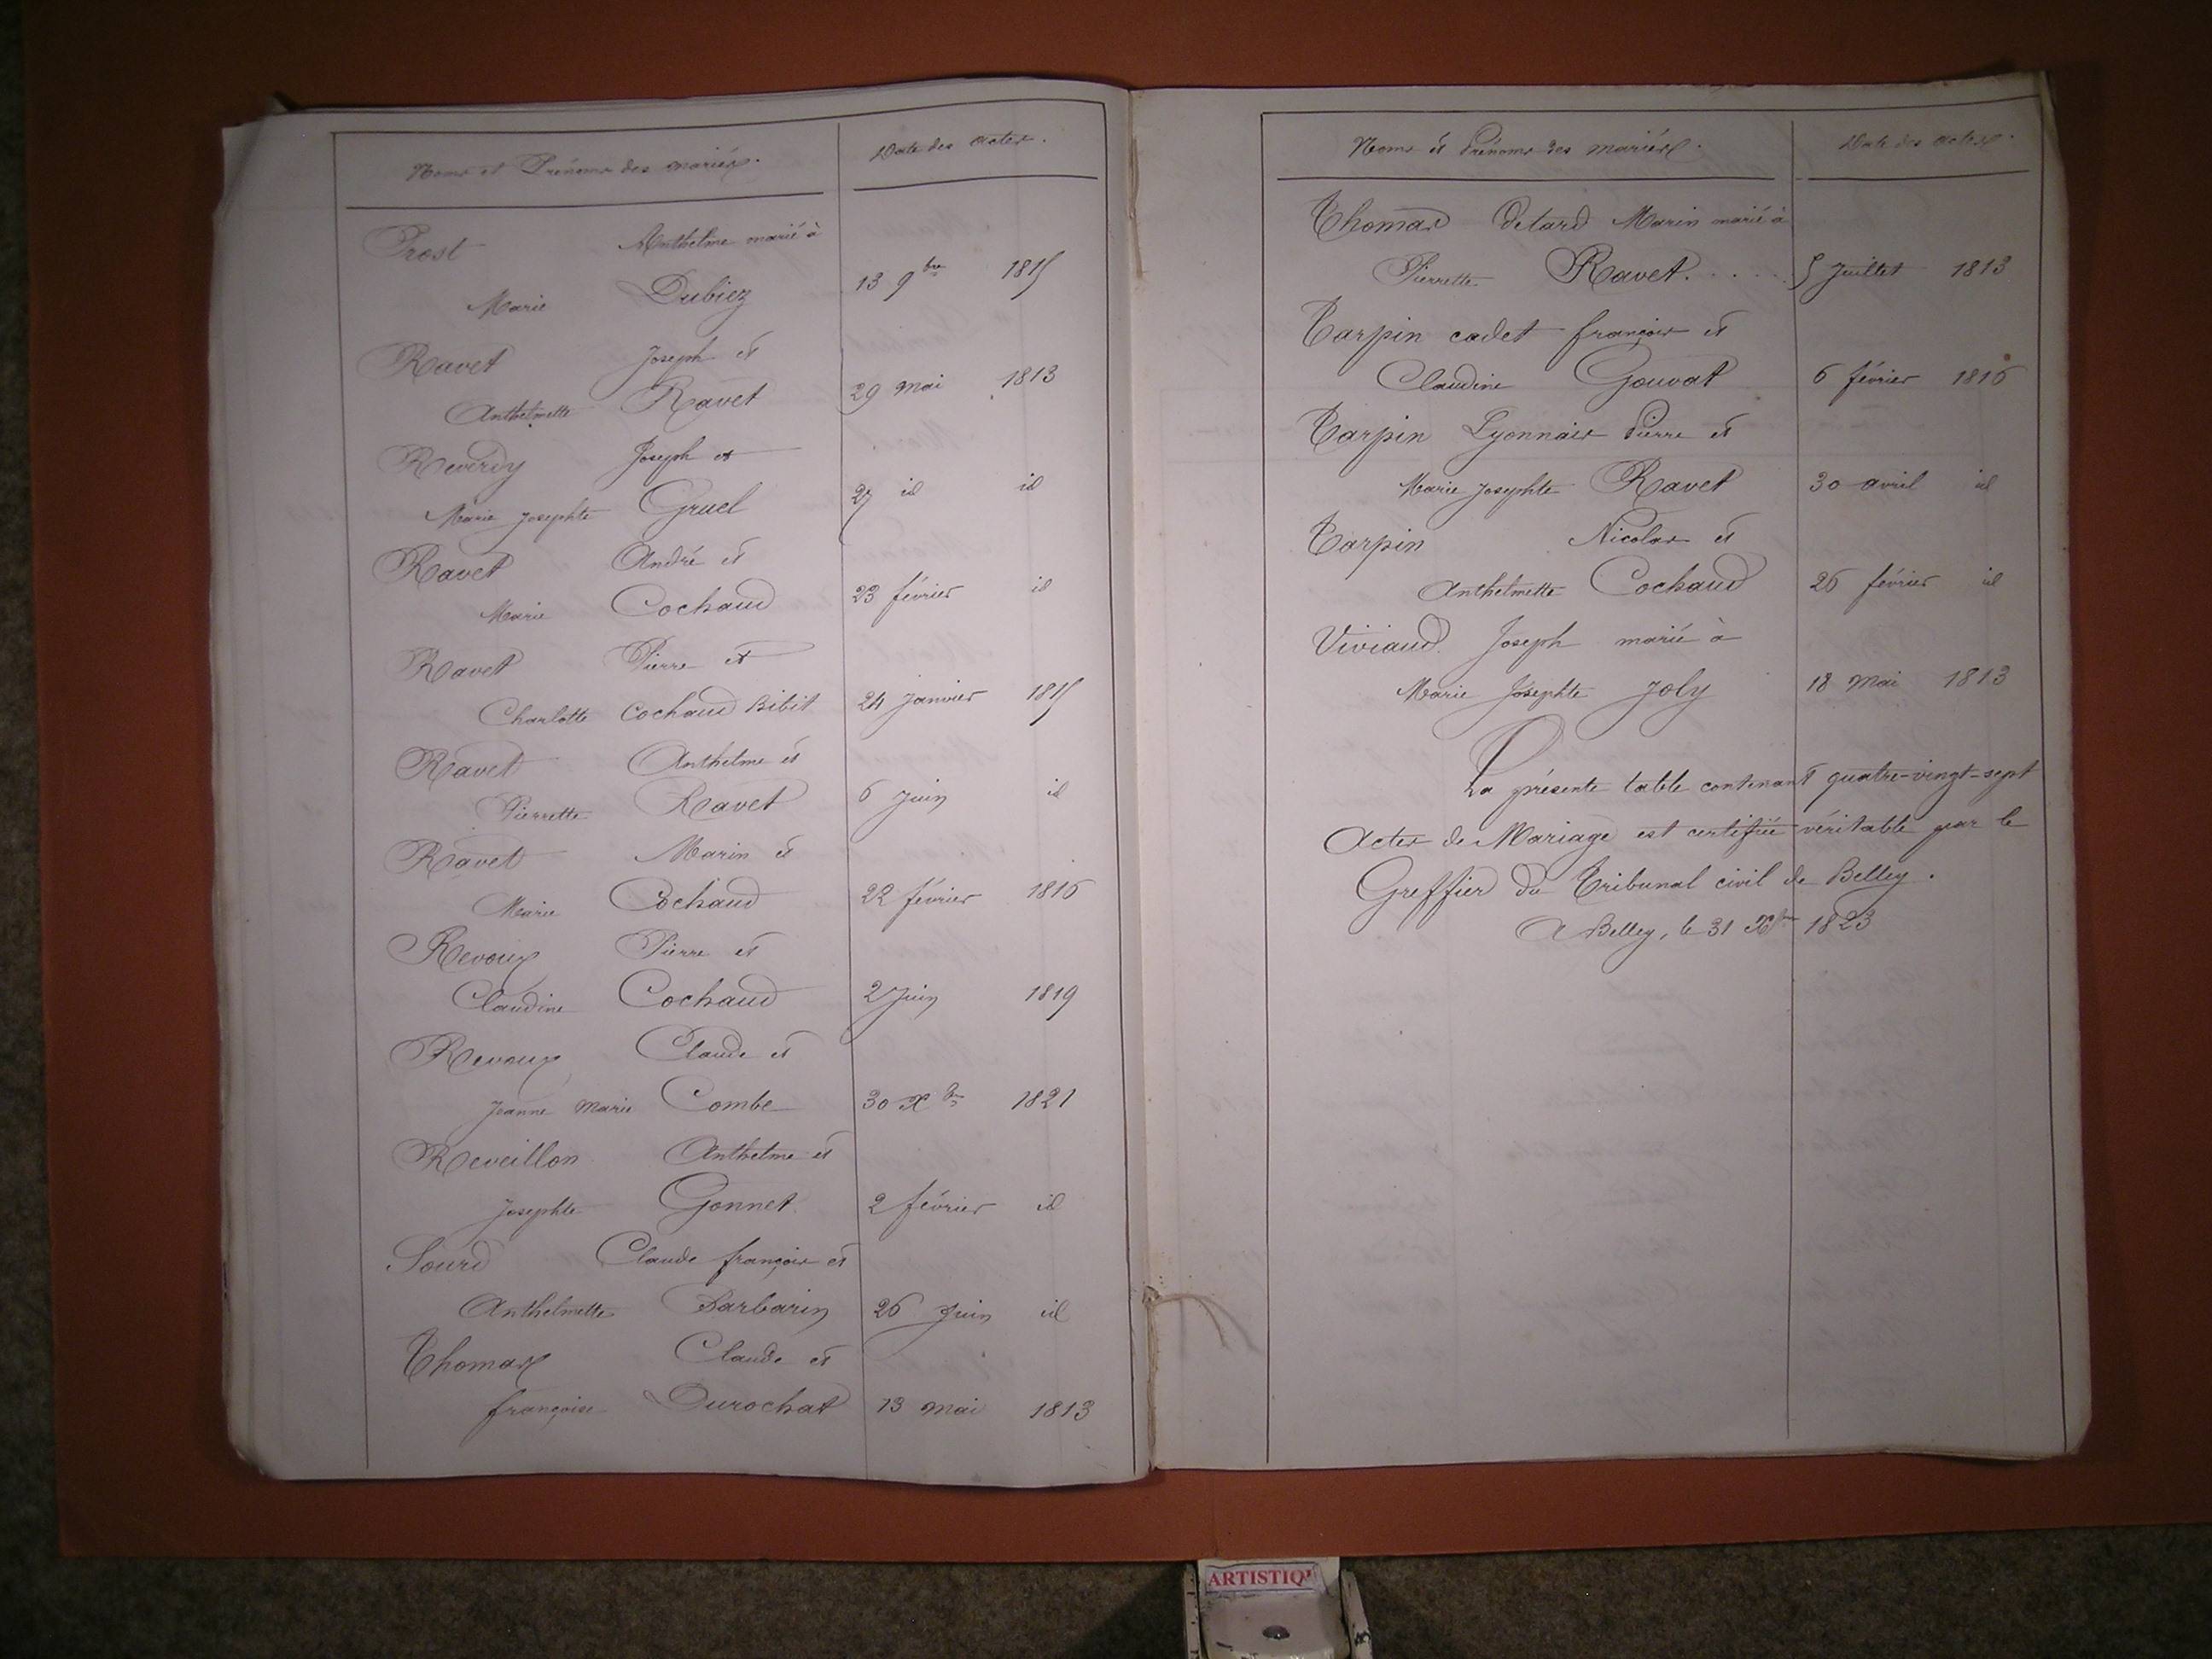 Noms et Prénoms des mariés. Date des actes.
Prost Anthelme marié à
Marie Dubiez 13 9bre 1815
Ravet Joseph et
Anthelmette Ravet 29 mai 1813
Reverdy Joseph et
Marie Josephte Gruel 27 id id
Ravet André et
Marie Cochaud 23 février id
Ravet Pierre et
Charlotte Cochaud Bibit 24 janvier 1815
Ravet Anthelme et
Pierrette Ravet 6 juin id
Ravet Marin et
Marie Cochaud 22 février 1816
Revoux Pierre et
Claudine Cochaud 2 Juin 1819
Revoux Claude et
Jeanne Marie Combe 30 Xbre 1821
Reveillon Anthelme et
Josephte Gonnet 2 février id
Sourd Claude françois et
Anthelmette Barbarin 26 Juin id
Thomas Claude et
françoise Durochat 13 mai 1813
Noms et Prénoms des mariés. Date des actes.
Thomas detard Marin marié à
Pierrette Ravet. . . . . 5 Juillet 1813
Tarpin cadet françois et
Claudine Gouvat 6 février 1816
Tarpin Lyonnais Pierre et
Marie Josephte Ravet 30 avril id
Tarpin Nicolas et
Anthelmette Cochaud 26 février id
Viviand Joseph marié à
Marie Josephte Joly 18 mai 1813
La présente table contenant quatre-vingt-sept
actes de Mariage est certifiée véritable par le
Greffier du Tribunal civil de Belley.
A Belley, le 31 Xbre 1823
ARTISTIQ